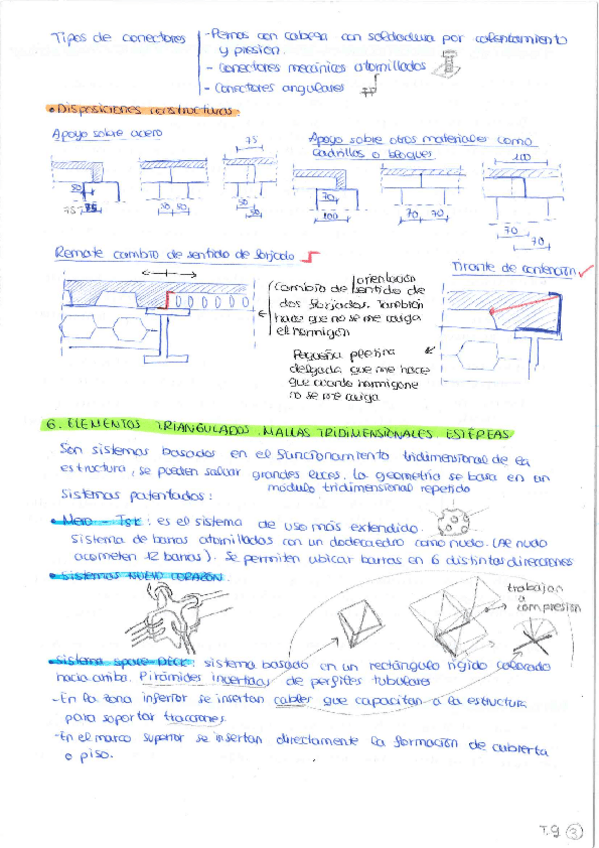 Tipos de conectores
- Pernos con cabeza con soldadura por calentamiento
y presion.
- Conectores mecánicos atornillados
- Conectores angulares
• Disposiciones constructivas
Apoyo sobre acero
Apoyo sobre otros materiales como
ladrillos o bloques
75
100
50
75
75
50 50
50
50
70
100
70 70
70
70
Remate cambio de sentido de forjado
Tirante de contención
orientación
Cambio de sentido de
dos forjados. También
hace que no se me caiga
el hormigón
Pequeña pletina
delgada que me hace
que cuando hormigone
no se me caiga
6. ELEMENTOS TRIANGULADOS. MALLAS TRIDIMENSIONALES. ESTÉREAS
Son sistemas basados en el funcionamiento tridimensional de la
estructura, se pueden salvar grandes luces. La geometría se basa en un
módulo tridimensional repetido
Sistemas patentados:
• Mero - TSK: es el sistema de uso más extendido.
Sistema de barras atornilladas con un dodecaedro como nudo. (Al nudo
acometen 12 barras). Se permiten ubicar barras en 6 distintas direcciones
• Sistemas NUEVO CORAZÓN.
trabajan
a
compresión
• Sistema space DECK: sistema basado en un rectángulo rígido colocado
hacia arriba. Pirámides invertidas de perfiles tubulares
- En la zona inferior se insertan cables que capacitan a la estructura
para soportar tracciones.
- En el marco superior se insertan directamente la formación de cubierta
o piso.
T.9 3